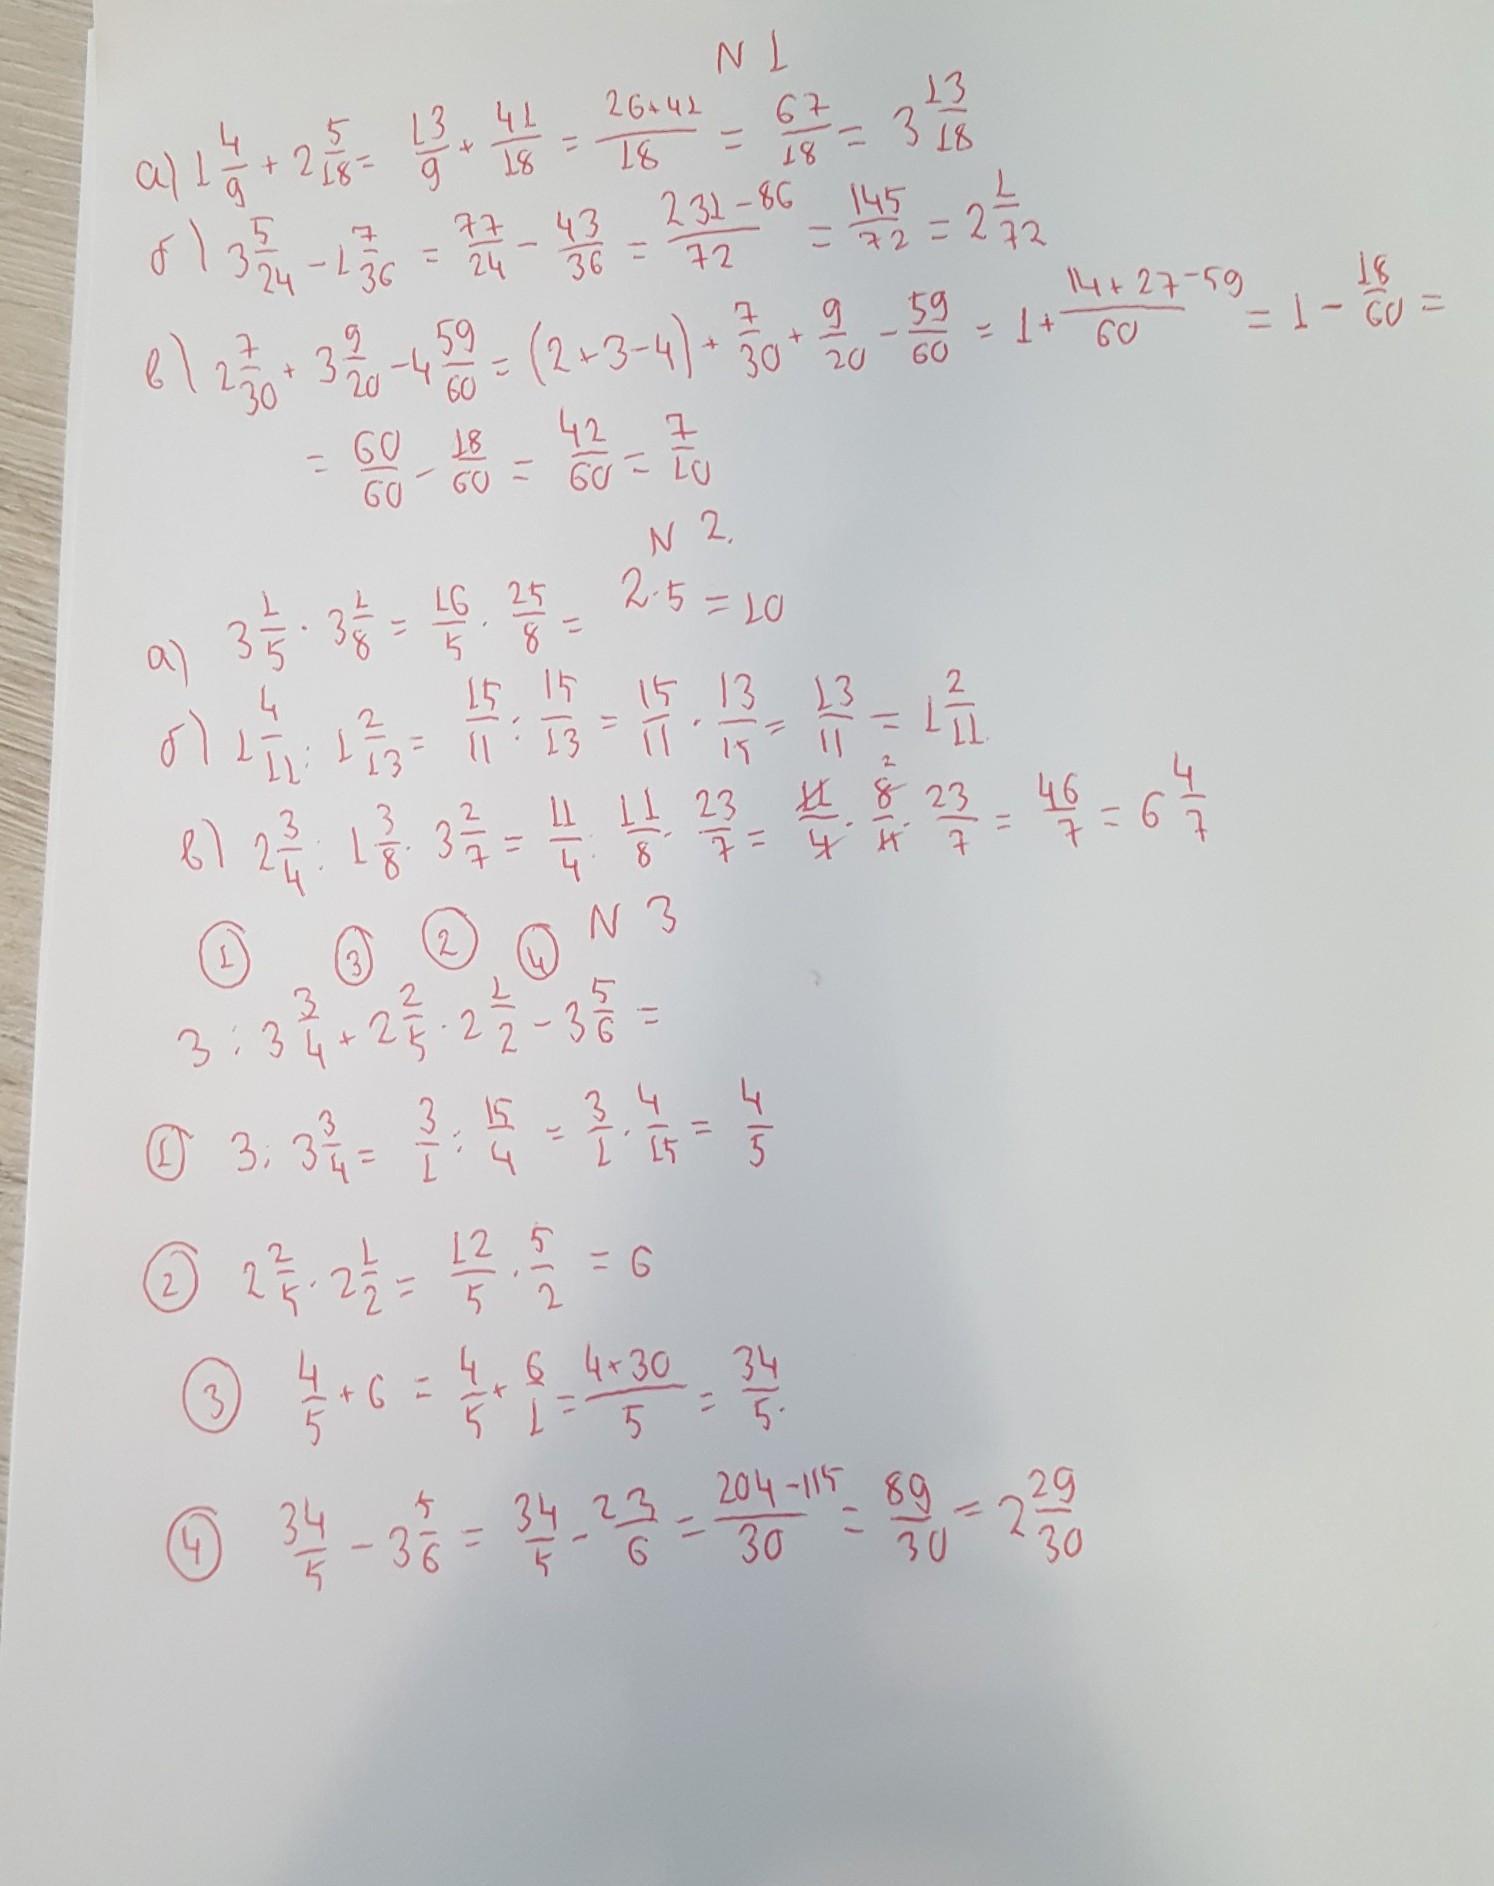 N 1
а) 1 4/9 + 2 5/18 = 13/9 + 41/18 = (26+41)/18 = 67/18 = 3 13/18
б) 3 5/24 - 1 7/36 = 77/24 - 43/36 = (231-86)/72 = 145/72 = 2 1/72
в) 2 7/30 + 3 9/20 - 4 59/60 = (2+3-4) + 7/30 + 9/20 - 59/60 = 1 + (14+27-59)/60 = 1 - 18/60 =
= 60/60 - 18/60 = 42/60 = 7/10
N 2.
а) 3 1/5 · 3 1/8 = 16/5 · 25/8 = 2·5 = 10
б) 1 4/11 : 1 2/13 = 15/11 : 15/13 = 15/11 · 13/15 = 13/11 = 1 2/11
в) 2 3/4 : 1 3/8 · 3 2/7 = 11/4 : 11/8 · 23/7 = 11/4 · 8/11 · 23/7 = 46/7 = 6 4/7
N 3
① ③ ② ④
3 : 3 3/4 + 2 2/5 · 2 1/2 - 3 5/6 =
① 3 : 3 3/4 = 3/1 : 15/4 = 3/1 · 4/15 = 4/5
② 2 2/5 · 2 1/2 = 12/5 · 5/2 = 6
③ 4/5 + 6 = 4/5 + 6/1 = (4+30)/5 = 34/5.
④ 34/5 - 3 5/6 = 34/5 - 23/6 = (204-115)/30 = 89/30 = 2 29/30